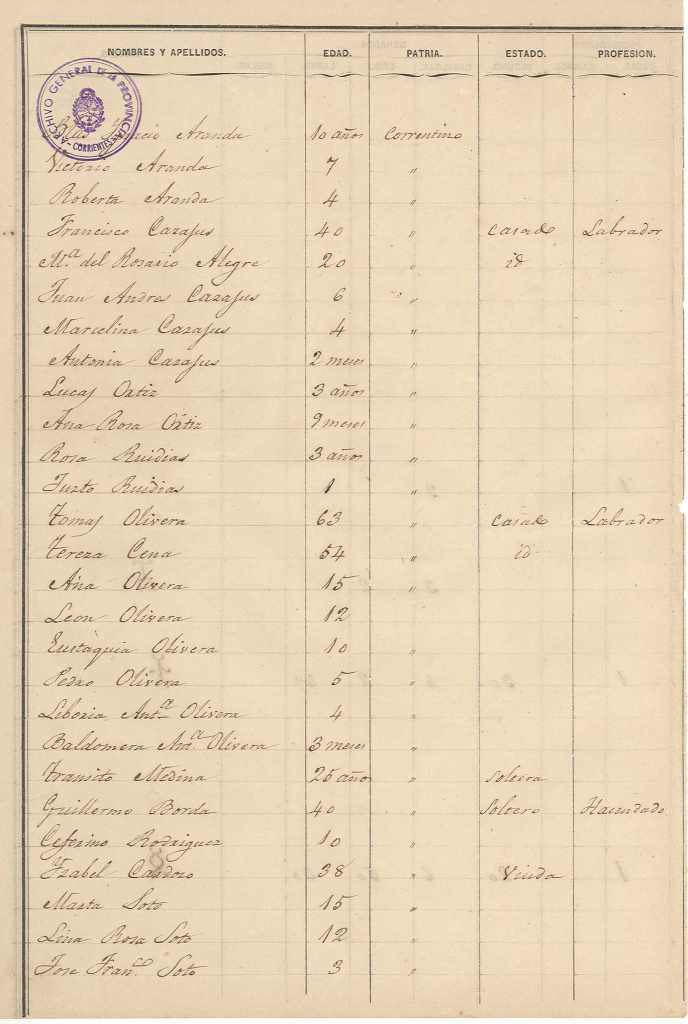 NOMBRES Y APELLIDOS. EDAD. PATRIA. ESTADO. PROFESION.
ARCHIVO GENERAL DE LA PROVINCIA - CORRIENTES -
Aranda 10 años Correntino
Victorio Aranda 7 "
Roberta Aranda 4 "
Francisco Cazajus 40 " casado Labrador
Mª del Rosario Alegre 20 " id
Juan Andres Cazajus 6 "
Marcelina Cazajus 4 "
Antonia Cazajus 2 meses "
Lucas Ortiz 3 años "
Ana Rosa Ortiz 9 meses "
Rosa Ruidias 3 años "
Justo Ruidias 1 "
Tomas Olivera 63 " casado Labrador
Tereza Cena 54 " id
Ana Olivera 15 "
Leon Olivera 12 "
Eustaquia Olivera 10 "
Pedro Olivera 5 "
Liboria Antª Olivera 4 "
Baldomera Antª Olivera 3 meses "
Transito Medina 25 años " soltera
Guillermo Borda 40 " Soltero Hacendado
Ceferino Rodriguez 10 "
Ysabel Cardozo 38 " Viuda
Marta Soto 15 "
Lina Rosa Soto 12 "
Jose Franco. Soto 3 "